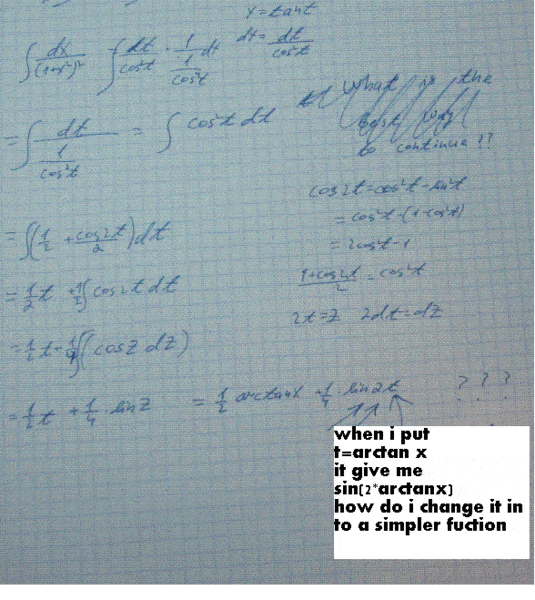 x = tant
∫ dx/(1+x²)² ∫ dt/cos²t · 1/(1/cos²t) dt dt = dt/cos²t
what is the
best way
to continue !?
= ∫ dt/(1/cos²t) = ∫ cos²t dt
cos2t = cos²t - sin²t
= cos²t - (1-cos²t)
= 2cos²t - 1
= ∫(1/2 + cos2t/2) dt
(1+cos2t)/2 = cos²t
= 1/2 t + 1/2 ∫ cos2t dt
2t = z 2dt = dz
= 1/2 t + 1/4 ∫(cosz dz)
= 1/2 t + 1/4 · sin z = 1/2 arctanx + 1/4 · sin2t ? ? ?
when i put
t=arctan x
it give me
sin(2*arctanx)
how do i change it in
to a simpler fuction